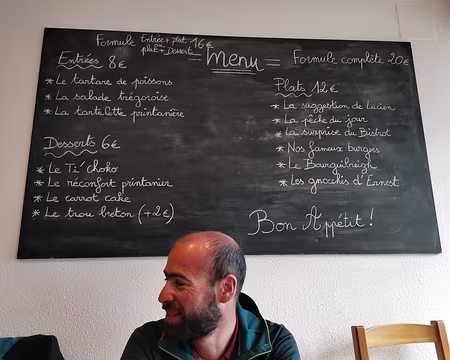 Formule Entrée + plat 16€
plat + Dessert
= Menu =
Formule complète 20€
Entrées 8€
* Le tartare de poissons
* La salade trégoroise
* La tartelette printanière
Desserts 6€
* Le Ti' choko
* Le réconfort printanier
* Le carrot cake
* Le trou breton (+2€)
Plats 12€
* La suggestion de Lucien
* La pêche du jour
* La surprise du Bistrot
* Nos fameux burgers
* Le Bourguibreizh
* Les gnocchis d'Ernest
Bon Appétit !